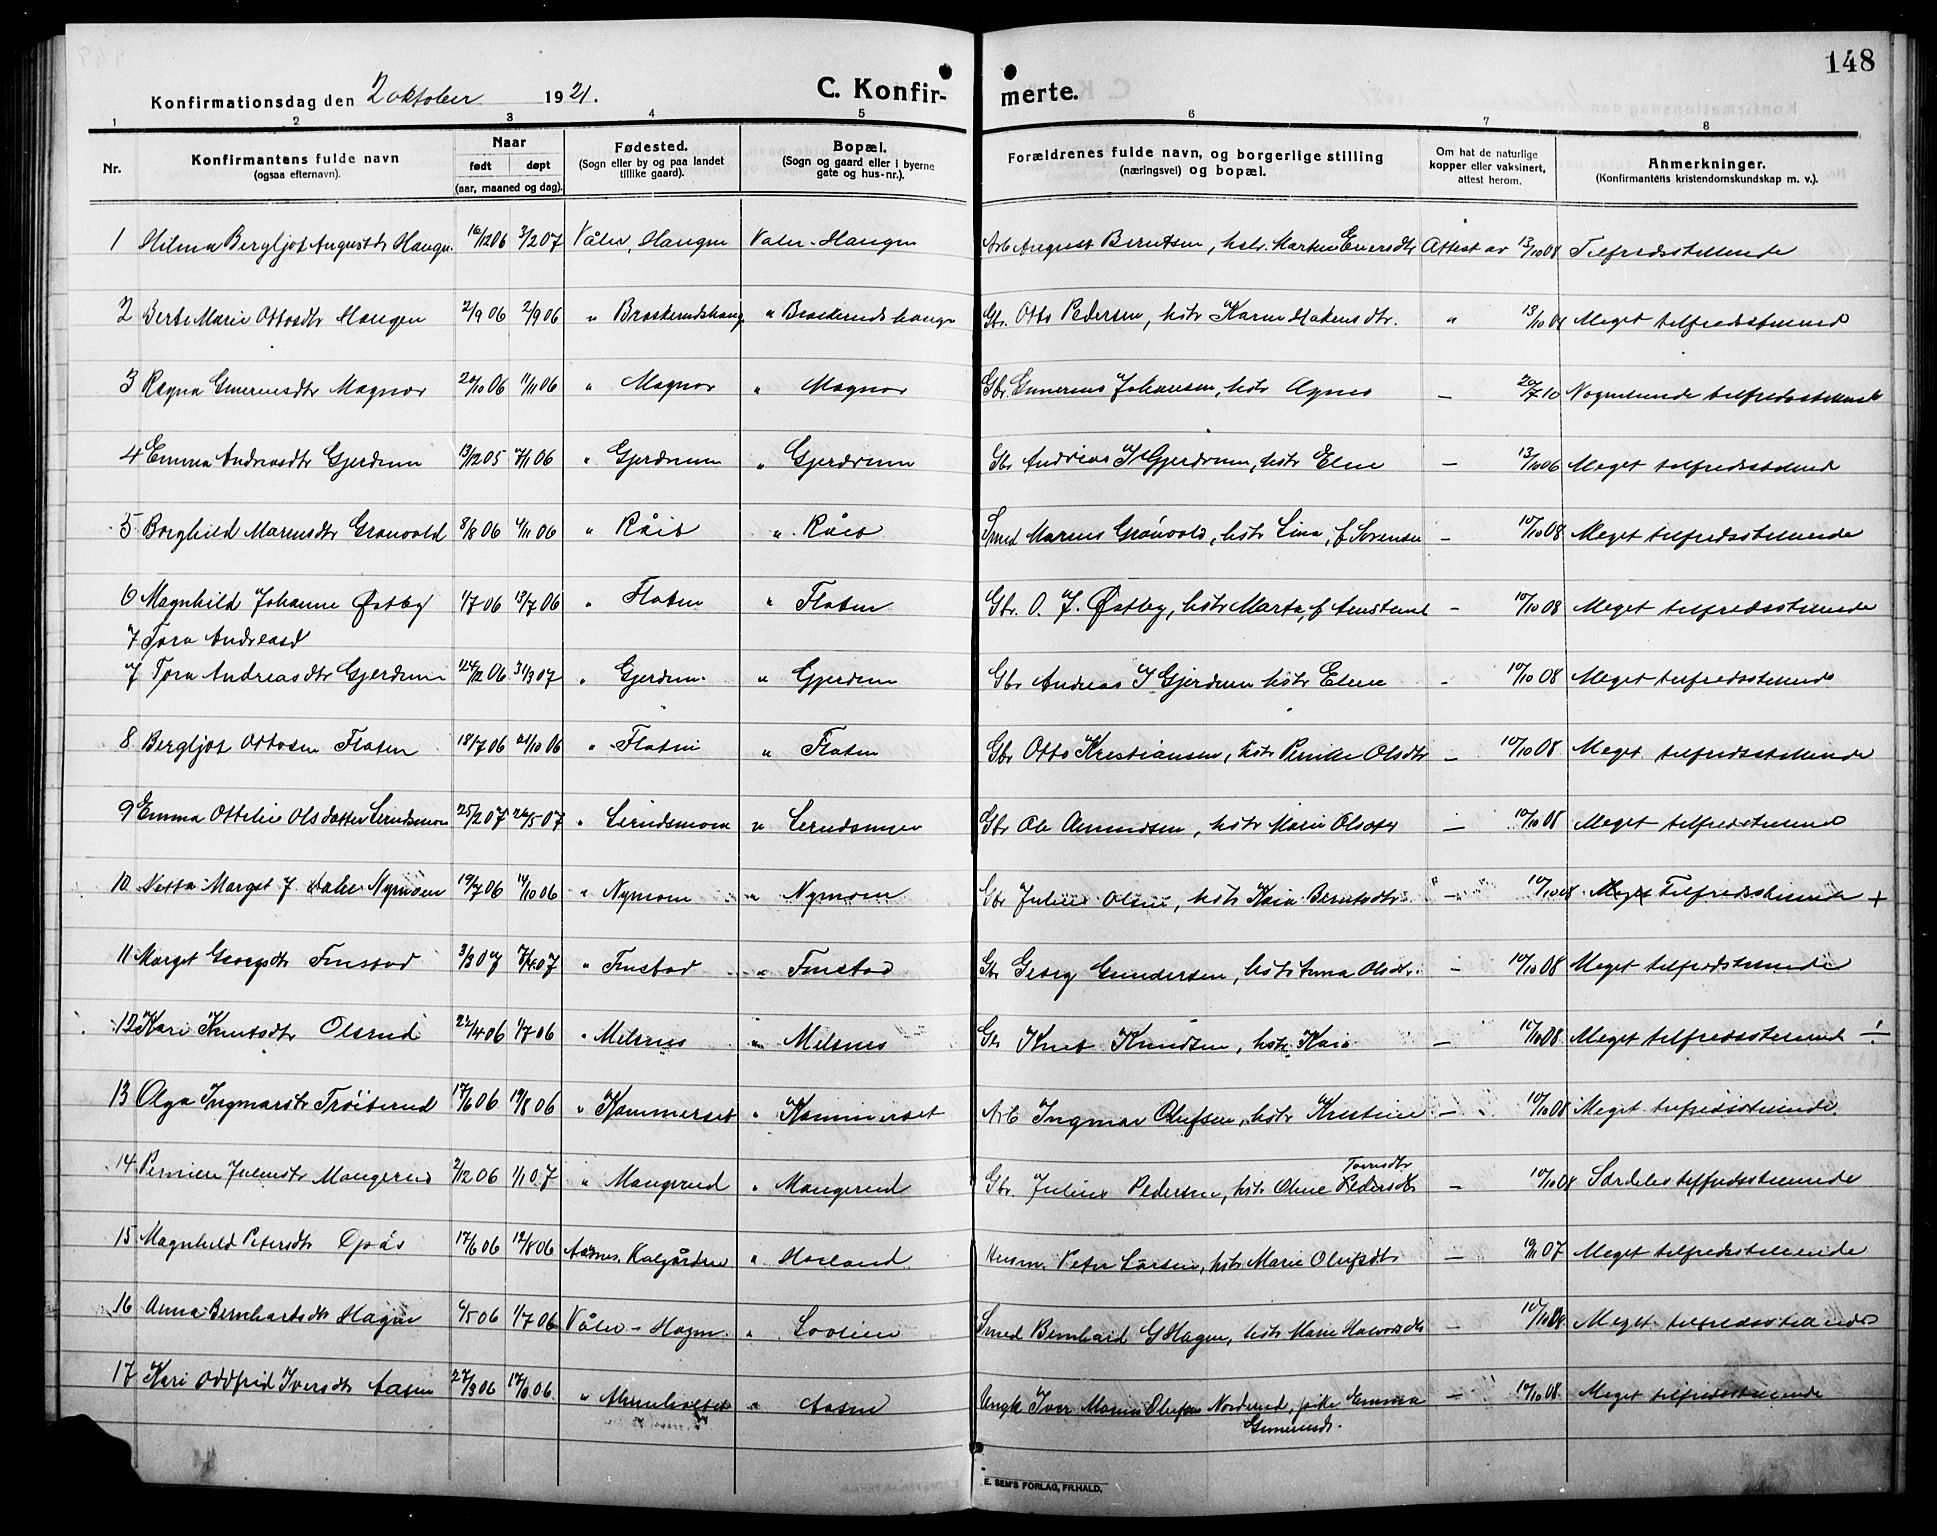 148
Konfirmationsdag den 2 oktober 1921. C. Konfirmerte.
1 2 3 4 5 6 7 8
Nr. Konfirmantens fulde navn Naar Fødested. Bopæl. Forældrenes fulde navn, og borgerlige stilling Om hat de naturlige Anmerkninger.
(ogsaa efternavn). født døpt (Sogn eller by og paa landet (Sogn og gaard eller i byerne (næringsvei) og bopæl. kopper eller vaksinert, (Konfirmantens kristendomskundskap m. v.).
(aar, maaned og dag). tillike gaard). gate og hus-nr.). attest herom.
1 Hilma Bergljot Augustdtr Haugen 16/12 06 3/2 07 Våler, Haugen Valer-Haugen Arb August Berntsen, hstr. Marten Eversdtr Attest av 13/10 08 Tilfredsstillende
2 Berte Marie Ottosdtr Haugen 2/9 06 2/9 06 " " Gbr. Otto Pedersen, hstr Karen Hakensdtr. " Meget tilfredsstillend
3 Ragna Magnor 20/10 06 11/11 06 " Magnor " Magnor Gbr. Johansen, hstr Agnes — 20/7 10 Nogenlunde tilfredsstillende
4 Emma Andreasdtr Gjerdrum 13/12 05 7/1 06 " Gjerdrum " Gjerdrum Gbr Andreas J Gjerdrum, hstr Eline — 13/10 06 Meget tilfredsstillend
5 Borghild Grønvold 8/8 06 4/11 06 " Råis " Råis Smed Grønvold, hstr Lina, f Sorensen — 10/10 08 Meget tilfredsstillende
6 Magnhild Johanne Østby 1/7 06 13/7 06 " Floten " Floten Gbr. O. J. Østby, hstr Marta, f — 10/10 08 Meget tilfredsstillende
7 Tora Andreasd
7 Tora Andreasdtr Gjerdrum 24/12 06 31/3 07 " Gjerdrum. " Gjerdrum Gbr Andreas J Gjerdrum hstr Eline - 10/10 08 Meget tilfredsstillende
8 Bergljot Ottosen Floten 18/7 06 21/10 06 " Floten " Floten Gbr Otto Kristiansen, hstr Olsdtr — 10/10 08 Meget tilfredsstillende
9 Emma Ottilie Olsdatter 25/2 07 26/5 07 " " Gbr Ole Amundsen, hstr Marie — 10/10 08 Meget tilfredsstillend
10 Netta Marget J. Nymoen 19/7 06 14/10 06 " Nymoen " Nymoen Gbr Julius Olsen, hstr Kaia Berntsdtr " — 10/10 08 Meget Tilfredsstillende +
11 Marget Georgsdtr 3/3 07 7/4 07 " " Gbr Georg Gundersen, hstr Anna Olsdtr. — 10/10 08 Meget tilfredsstillende
12 Kari Knutsdtr Olsrud 22/4 06 1/7 06 " Melsnes " Melsnes Gbr Knut Knudsen, hstr. Kaia — 10/10 08 Meget tilfredsstillende
13 Olga Ingmarsdtr Trøiterud 17/6 06 19/8 06 " Kammerset " Kammerset Arb Ingmar Olufsen, hstr Kristine — 10/10 08 Meget tilfredsstillende
14 Mangerud 2/12 06 1/1 07 " Mangerud " Mangerud Gbr. Julius Pedersen, hstr Oline Pedersdtr — 10/10 08 Særdeles tilfredsstillende
15 Magnhild Petersdtr Opås 17/6 06 12/8 06 Aasnes. Kalgården " Haland Husm. Peter Larsen, hstr Marie Olufsdtr — 19/11 07 Meget tilfredsstillende
16 Anna Bernhardsdtr Hagen 6/5 06 1/7 06 Våler - Hagen. " Lovlien Smed Bernhard G Hagen, hstr Marie Halvorsdtr — 10/10 08 Meget tilfredsstillende
17 Kari Oddfrid Iversdtr Aasen 27/3 06 17/6 06 " " Aasen Ungk Iver Marius Olufsen Norderud, pike Emma — 10/10 08. Meget tilfredsstillende
E. SEM'S FORLAG, FR.HALD.